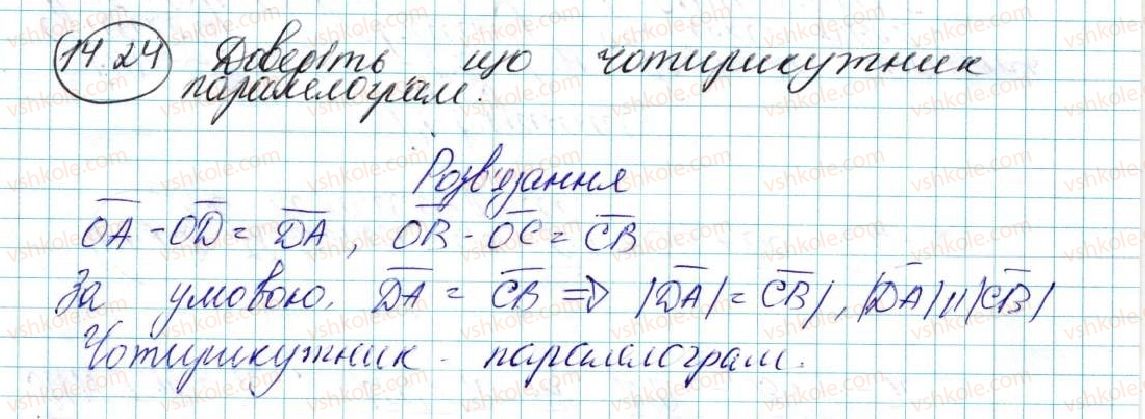 14.24 Доведіть що чотирикутник
паралелограм.
Розв'язання
OA - OD = DA, OB - OC = CB
За умовою, DA = CB => |DA| = CB|, |DA| || |CB|
Чотирикутник - паралелограм.